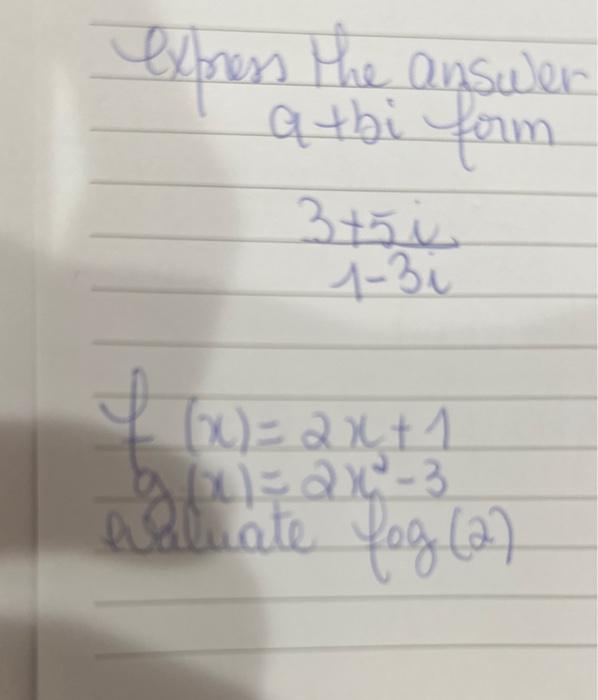 express the answer
a+bi form
3+5i
1-3i
f(x)=2x+1
g(x)=2x²-3
evaluate fog(2)